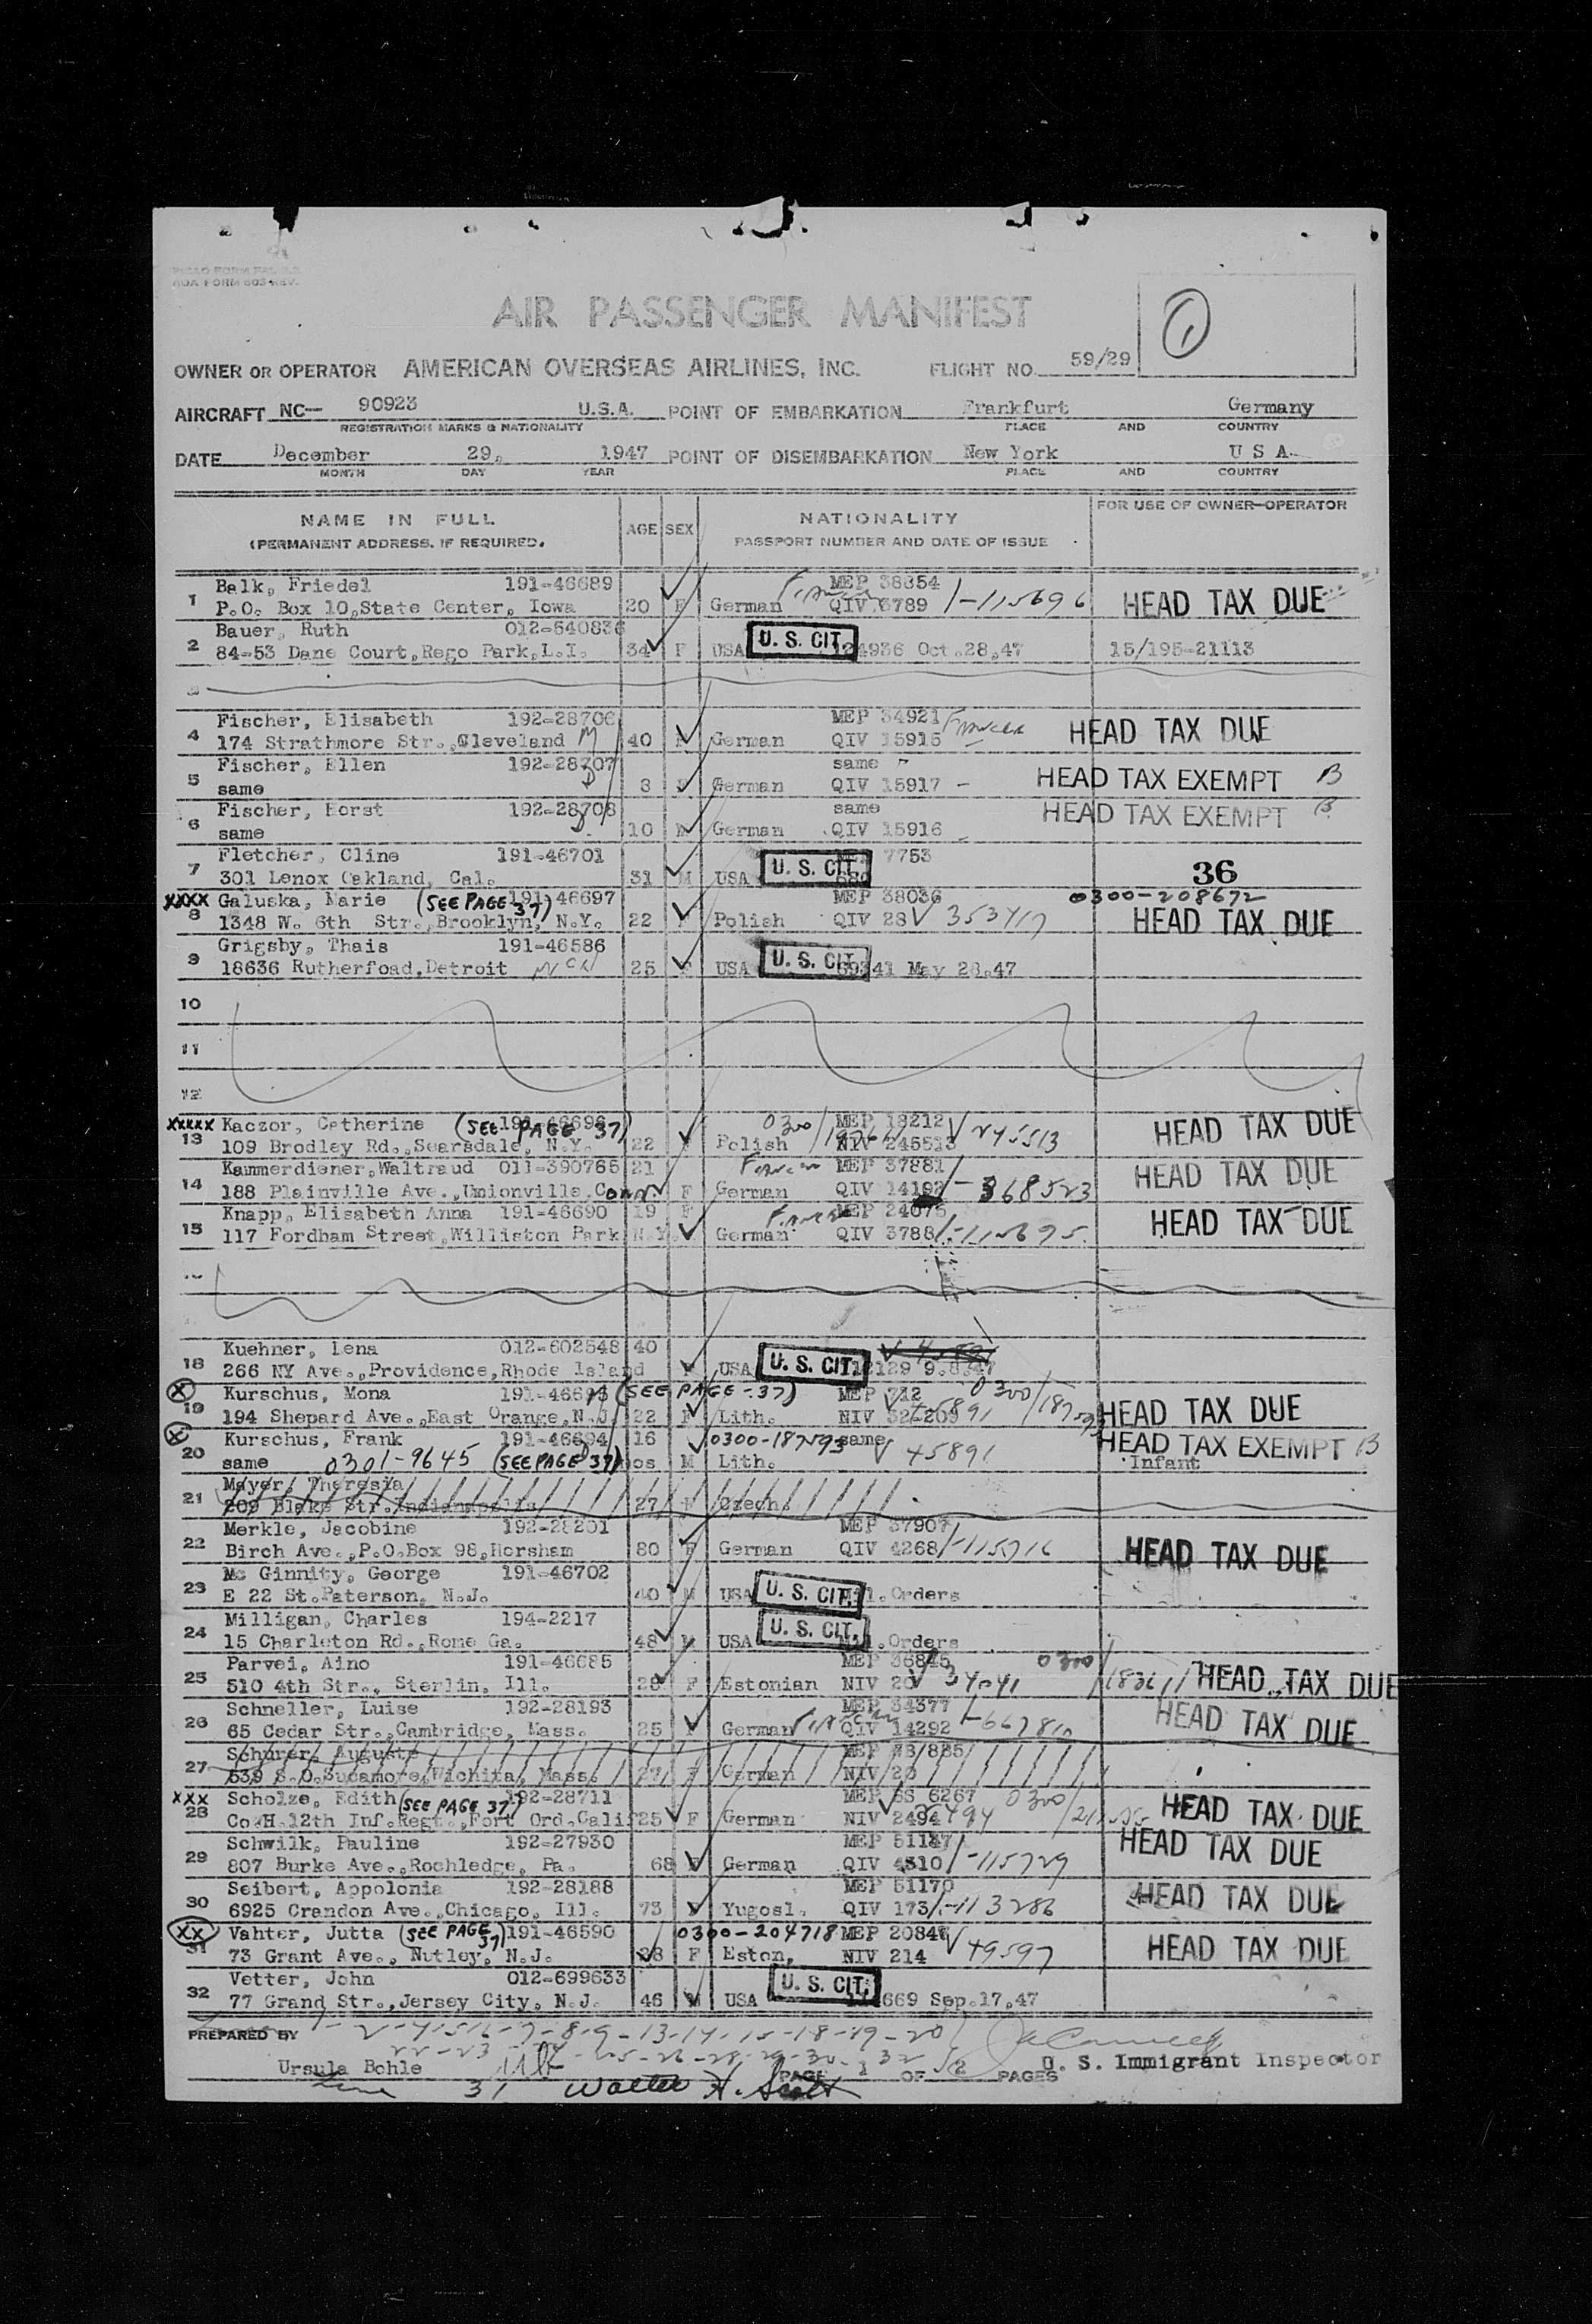 AOA FORM 603 REV.
1
AIR PASSENGER MANIFEST
OWNER OR OPERATOR AMERICAN OVERSEAS AIRLINES, INC. FLIGHT NO. 59/29
AIRCRAFT NC— 90923 U.S.A. POINT OF EMBARKATION Frankfurt Germany
REGISTRATION MARKS & NATIONALITY PLACE AND COUNTRY
DATE December 29, 1947 POINT OF DISEMBARKATION New York U S A
MONTH DAY YEAR PLACE AND COUNTRY
NAME IN FULL AGE SEX NATIONALITY FOR USE OF OWNER—OPERATOR
(PERMANENT ADDRESS, IF REQUIRED. PASSPORT NUMBER AND DATE OF ISSUE
Balk, Friedel 191-46689 MEP 38354
1 P.O. Box 10,State Center, Iowa 20 F German QIV 3789 /-115696 HEAD TAX DUE
Bauer, Ruth 012-640836
2 84-53 Dane Court,Rego Park,L.I. 34 F USA U. S. CIT. 124936 Oct.28,47 15/195-21113
3
Fischer, Elisabeth 192-28706 MEP 34921
4 174 Strathmore Str.,Cleveland M 40 German QIV 15915 HEAD TAX DUE
Fischer, Ellen 192-28707 same
5 same 8 German QIV 15917 - HEAD TAX EXEMPT B
Fischer, Horst 192-28708 same
6 same 10 German QIV 15916 HEAD TAX EXEMPT B
Fletcher, Cline 191-46701 7753
7 301 Lenox Oakland, Cal. 31 M USA U. S. CIT. 36
XXXX Galuska, Marie (SEE PAGE 37) 191-46697 MEP 38036 0300-208672
8 1348 W. 6th Str.,Brooklyn, N.Y. 22 Polish QIV 28 V 353417 HEAD TAX DUE
Grigsby, Thais 191-46586
9 18636 Rutherfoad,Detroit MCH 25 USA U. S. CIT. 59341 May 28,47
10
11
12
XXXXX Kaczor, Catherine (SEE PAGE 37) MEP 18212 V 245513
13 109 Brodley Rd.,Scarsdale, N.Y. 22 Polish NIV 245513 HEAD TAX DUE
Kammerdiener,Waltraud 011-390765 21 MEP 37881
14 188 Plainville Ave.,Unionville,Conn. F German QIV 14192 - 368523 HEAD TAX DUE
Knapp, Elisabeth Anna 191-46690 19 F MEP 24075
15 117 Fordham Street,Williston Park N.Y. German QIV 3788 /-115695 HEAD TAX DUE
Kuehner, Lena 012-602548 40
18 266 NY Ave.,Providence,Rhode Island USA U. S. CIT. 12129 9.8.47
X Kurschus, Mona (SEE PAGE-37) MEP 712 0300/187593
19 194 Shepard Ave.,East Orange,N.J. 22 F Lith. NIV V 45891 HEAD TAX DUE
X Kurschus, Frank 191-46694 16 0300-187593 same HEAD TAX EXEMPT B
20 same 0301-9645 (SEE PAGE 37) mos M Lith. V 45891 Infant
Mayer, Theresia
21 209 Blake Str.Indianapolis 27 F Czech.
Merkle, Jacobine 192-28201 MEP 37907
22 Birch Ave.,P.O.Box 98,Horsham 80 F German QIV 4268 /-115716 HEAD TAX DUE
Mc Ginnity, George 191-46702
23 E 22 St.Paterson, N.J. 40 M USA U. S. CIT. Orders
Milligan, Charles 194-2217
24 15 Charleton Rd.,Rome Ga. 48 M USA U. S. CIT. Orders
Parvei, Aino 191-46685 MEP 36845 0300
25 510 4th Str., Sterlin, Ill. 28 F Estonian NIV 20 V 34041 /183611 HEAD TAX DUE
Schneller, Luise 192-28193 MEP 34377
26 65 Cedar Str.,Cambridge, Mass. 25 German QIV 14292 HEAD TAX DUE
Schurer, Auguste
27 539 S.O.Sucamore,Wichita, Mass. 27 F German NIV 20
XXX Scholze, Edith (SEE PAGE 37) 192-28711 MEP SS 6267 0300
28 Co.H.12th Inf.Regt.,Fort Ord.Calif 25 F German NIV 2494 HEAD TAX DUE
Schwilk, Pauline 192-27930 MEP 51137
29 807 Burke Ave.,Rochledge, Pa. 68 German QIV 4310 /-115729 HEAD TAX DUE
Seibert, Appolonia 192-28188 MEP 51170
30 6925 Crandon Ave.,Chicago, Ill. 73 Yugosl. QIV 173 /-113286 HEAD TAX DUE
XX Vahter, Jutta (SEE PAGE 37) 191-46590 0300-204718 MEP 20848
31 73 Grant Ave., Nutley, N.J. 28 F Eston, NIV 214 V 49597 HEAD TAX DUE
Vetter, John 012-699633
32 77 Grand Str.,Jersey City, N.J. 46 M USA U. S. CIT. 669 Sep.17,47
PREPARED BY 1-2-4-5-6-7-8-9-13-14-15-18-19-20
Ursula Bohle 22-23-24-25-26-28-29-30-32 PAGE 1 OF 2 PAGES U. S. Immigrant Inspector
Line 31 Walter H. Scott